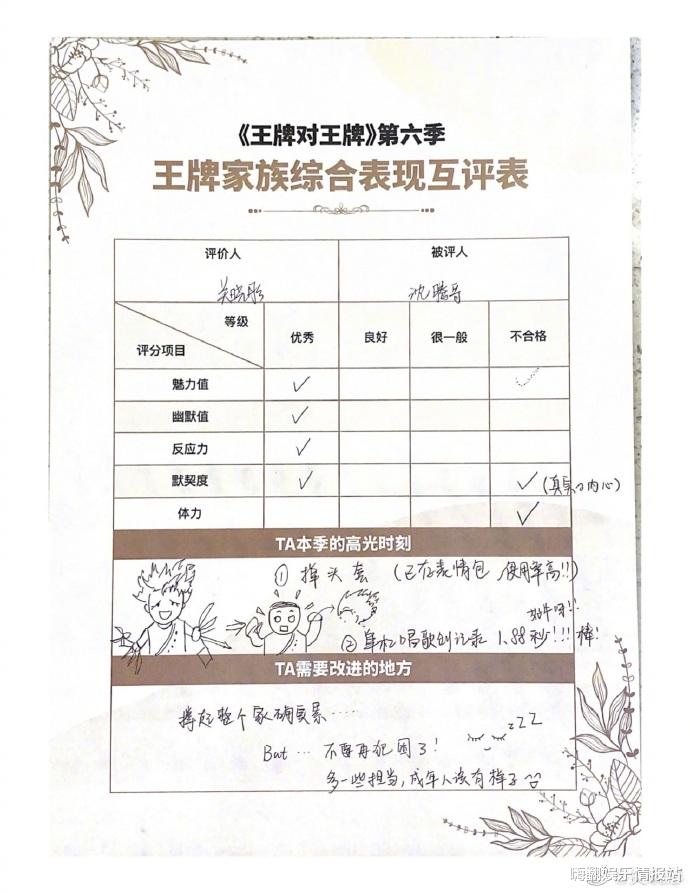 《王牌对王牌》第六季
王牌家族综合表现互评表
评价人 被评人
关晓彤 沈腾哥
等级
评分项目 优秀 良好 很一般 不合格
魅力值 ✓ ✓
幽默值 ✓
反应力 ✓
默契度 ✓ ✓ (真实的内心)
体力 ✓
TA本季的高光时刻
① 掉头套 (已存表情包 使用率高!!)
好牛呀!!
② 单杠唱歌创记录 1.88秒!!! 棒!
TA需要改进的地方
撑起整个家确实累……
But … 不要再犯困了! zZZ
多一些担当,成年人该有样子
嗨翻娱乐情报站